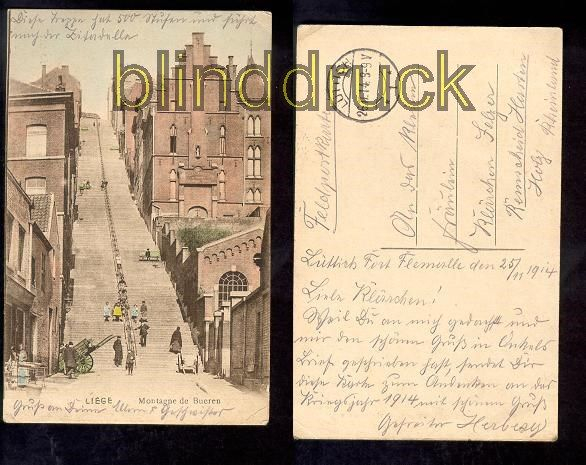 Diese Treppe hat 500 Stufen und führt
nach der Citadelle
blinddruck
LIÉGE Montagne de Bueren
Gruß an Deine Eltern & Geschwister
Feldpostkarte
An das kleine
Fräulein
Klärchen Selzer
Remscheid Hasten
Holz Rheinland
Lüttich Fort Flemalle den 25/11 1914
Liebe Klärchen!
Weil Du an mich gedacht und
mir den schönen Gruß in Onkels
Brief geschrieben hast, sendet Dir
diese Karte zum Andenken an das
Kriegsjahr 1914, mit schönem Gruß
Gefreiter